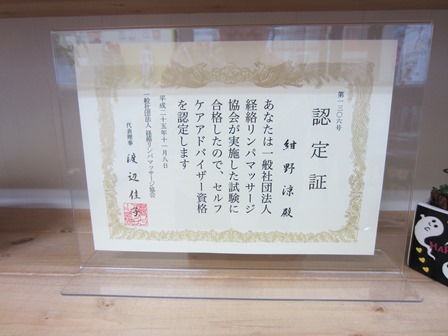 第一三〇六号
認定証
紺野涼殿
あなたは一般社団法人
経絡リンパマッサージ
協会が実施した試験に
合格したので、セルフ
ケアアドバイザー資格
を認定します
平成二十五年十一月八日
一般社団法人 経絡リンパマッサージ協会
代表理事 渡辺佳子